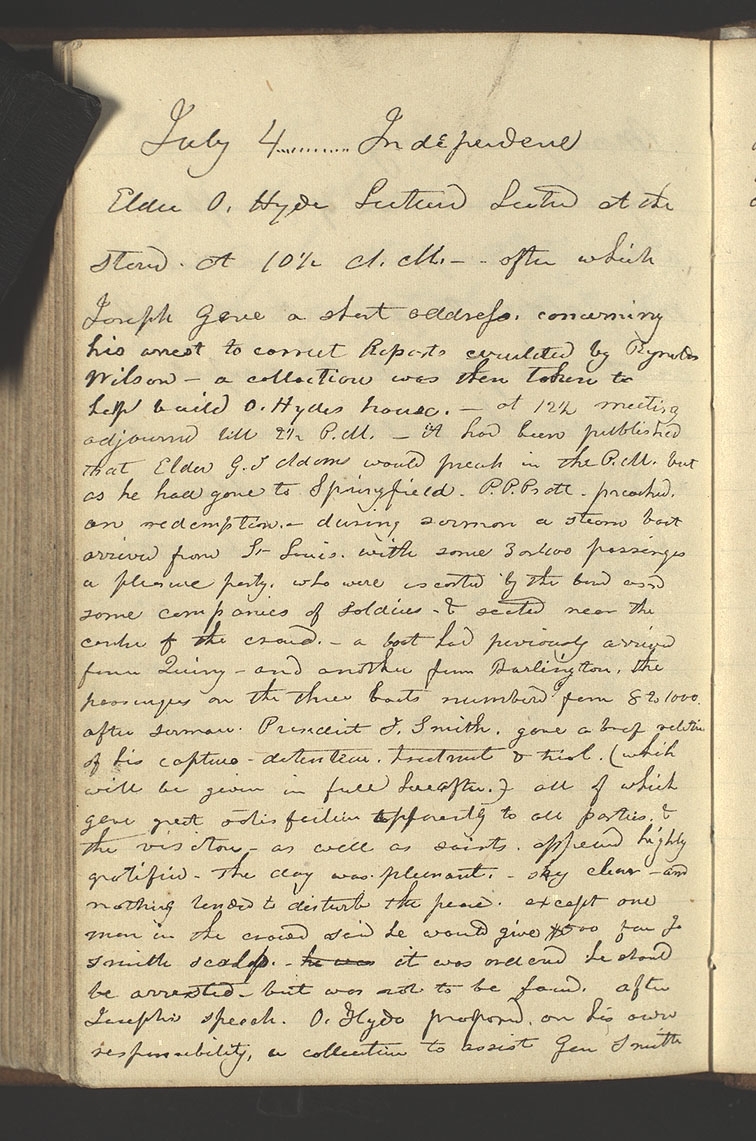 July 4......... Independene
Elder O. Hyde Lectured at the
stand. at 10½ A.M. - - after which
Joseph Gave a short address. concerning
his arrest to correct Reports circulated by Reynolds
Wilson - a collection was then taken to
help build O. Hydes house. - at 12½ meeting
adjourned till 2½ P.M. - it had been published
that Elder G. J Adams would preach in the P.M. but
as he had gone to Springfield. P.P. Pratt. preached.
on redemption. - during sermon a steam boat
arrived from St Louis. with some 3 or 400 passenges
a pleasure party. who were escorted by the band and
some companies of soldiers - & seated near the
center of the crowd. - a boat had previously arrived
from Quincy - and another from Burlington. the
passengers on the three boats numbered from 8 to 1000.
after sermon. President J. Smith. gave a brief relation
of his capture - detention. treatment & trial. (which
will be given in full hereafter.) all of which
gave great satisfaction apparently to all parties. &
the visitors - as well as saints. appeared highly
gratified - the day was pleasant. - sky clear - and
nothing tended to disturb the peace. except one
man in the crowd said he would give $500 for Jo
Smith scalp. - he was it was ordered he should
be arrested - but was not to be found. after
Josephs speech. O. Hyde proposed. on his own
responsibility, a collection to assist Gen Smith